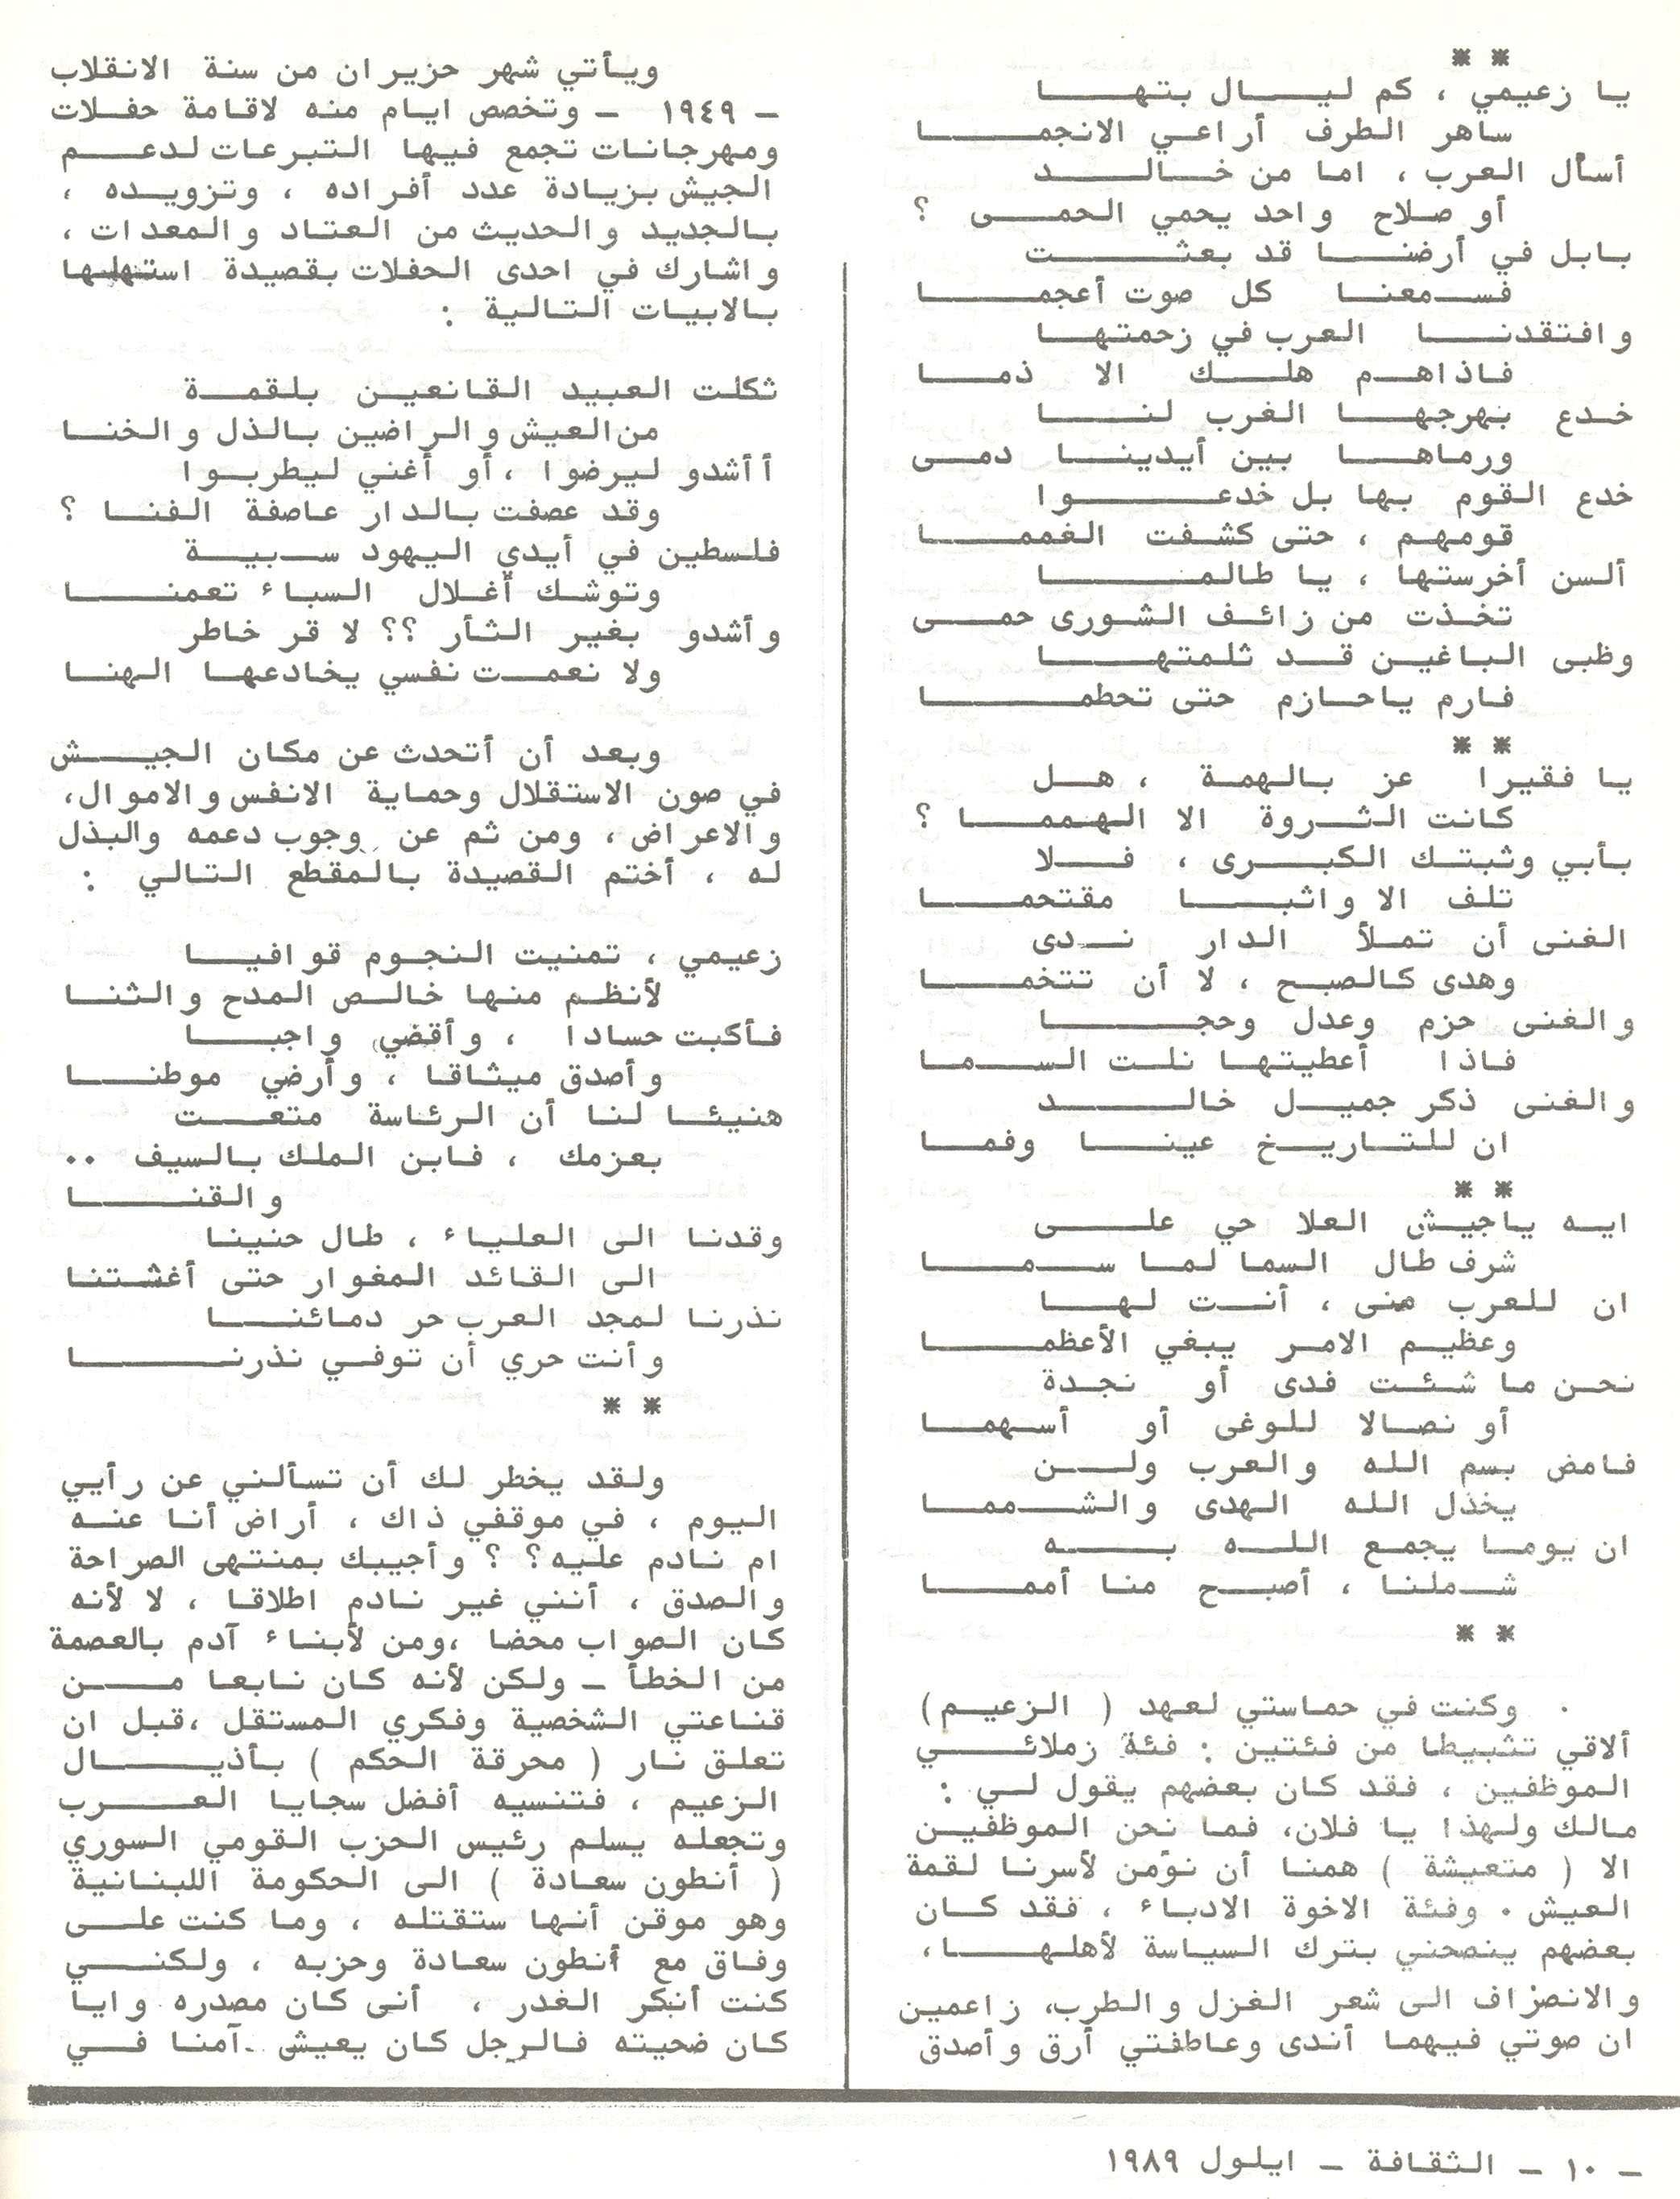 * *
يا زعيمي ، كم ليال بتها
ساهر الطرف أراعي الانجما
أسأل العرب ، اما من خالد
أو صلاح واحد يحمي الحمى ؟
بابل في أرضنا قد بعثت
فسمعنا كل صوت أعجما
وافتقدنا العرب في زحمتها
فاذاهم هلك الا ذما
خدع بهرجها الغرب لنا
ورماها بين أيدينا دمى
خدع القوم بها بل خدعوا
قومهم ، حتى كشفت الغمما
ألسن أخرستها ، يا طالما
تخذت من زائف الشورى حمى
وظبى الباغين قد ثلمتها
فارم ياحازم حتى تحطما
* *
يا فقيرا عز بالهمة ، هل
كانت الثروة الا الهمما ؟
بأبي وثبتك الكبرى ، فلا
تلف الا واثبا مقتحما
الغنى أن تملأ الدار ندى
وهدى كالصبح ، لا أن تتخما
والغنى حزم وعدل وحجا
فاذا أعطيتها نلت السما
والغنى ذكر جميل خالد
ان للتاريخ عينا وفما
* *
ايه ياجيش العلا حي على
شرف طال السما لما سما
ان للعرب منى ، أنت لها
وعظيم الامر يبغي الأعظما
نحن ما شئت فدى أو نجدة
أو نصالا للوغى أو أسهما
فامض بسم الله والعرب ولن
يخذل الله الهدى والشمما
ان يوما يجمع الله به
شملنا ، أصبح منا أمما
* *
وكنت في حماستي لعهد ( الزعيم )
ألاقي تثبيطا من فئتين : فئة زملائي
الموظفين ، فقد كان بعضهم يقول لي :
مالك ولهذا يا فلان، فما نحن الموظفين
الا ( متعيشة ) همنا أن نؤمن لأسرنا لقمة
العيش . وفئة الاخوة الادباء ، فقد كان
بعضهم ينصحني بترك السياسة لأهلها ،
والانصراف الى شعر الغزل والطرب، زاعمين
ان صوتي فيهما أندى وعاطفتي أرق وأصدق
ويأتي شهر حزيران من سنة الانقلاب
- ١٩٤٩ - وتخصص ايام منه لاقامة حفلات
ومهرجانات تجمع فيها التبرعات لدعم
الجيش بزيادة عدد أفراده ، وتزويده ،
بالجديد والحديث من العتاد والمعدات ،
واشارك في احدى الحفلات بقصيدة استهلها
بالابيات التالية :
ثكلت العبيد القانعين بلقمة
من العيش والراضين بالذل والخنا
أأشدو ليرضوا ، أو أغني ليطربوا
وقد عصفت بالدار عاصفة الفنا ؟
فلسطين في أيدي اليهود سبية
وتوشك أغلال السباء تعمنا
وأشدو بغير الثأر ؟؟ لا قر خاطر
ولا نعمت نفسي يخادعها الهنا
وبعد أن أتحدث عن مكان الجيش
في صون الاستقلال وحماية الانفس والاموال،
والاعراض، ومن ثم عن وجوب دعمه والبذل
له ، أختم القصيدة بالمقطع التالي :
زعيمي ، تمنيت النجوم قوافيا
لأنظم منها خالص المدح والثنا
فأكبت حسادا ، وأقضي واجبا
وأصدق ميثاقا ، وأرضي موطنا
هنيئا لنا أن الرئاسة متعت
بعزمك ، فابن الملك بالسيف ..
والقنا
وقدنا الى العلياء ، طال حنيننا
الى القائد المغوار حتى أغثتنا
نذرنا لمجد العرب حر دمائنا
وأنت حري أن توفي نذرنا
* *
ولقد يخطر لك أن تسألني عن رأيي
اليوم ، في موقفي ذاك ، أراض أنا عنه
ام نادم عليه؟ ؟ وأجيبك بمنتهى الصراحة
والصدق ، أنني غير نادم اطلاقا ، لا لأنه
كان الصواب محضا ،ومن لأبناء آدم بالعصمة
من الخطأ - ولكن لأنه كان نابعا من
قناعتي الشخصية وفكري المستقل ،قبل ان
تعلق نار ( محرقة الحكم ) بأذيال
الزعيم ، فتنسيه أفضل سجايا العرب
وتجعله يسلم رئيس الحزب القومي السوري
( أنطون سعادة ) الى الحكومة اللبنانية
وهو موقن أنها ستقتله ، وما كنت على
وفاق مع أنطون سعادة وحزبه ، ولكني
كنت أنكر الغدر ، أنى كان مصدره وايا
كان ضحيته فالرجل كان يعيش آمنا في
- ١٠ - الثقافة - ايلول ١٩٨٩